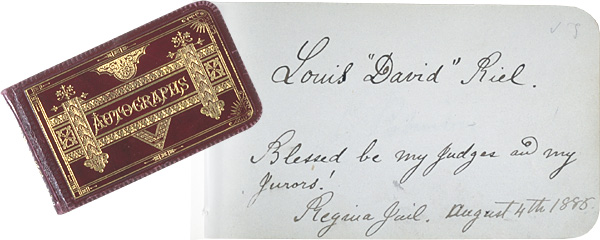 AUTOGRAPHS
Louis "David" Riel.
Blessed be my judges and my
jurors!
Regina Jail. August 4th 1885.